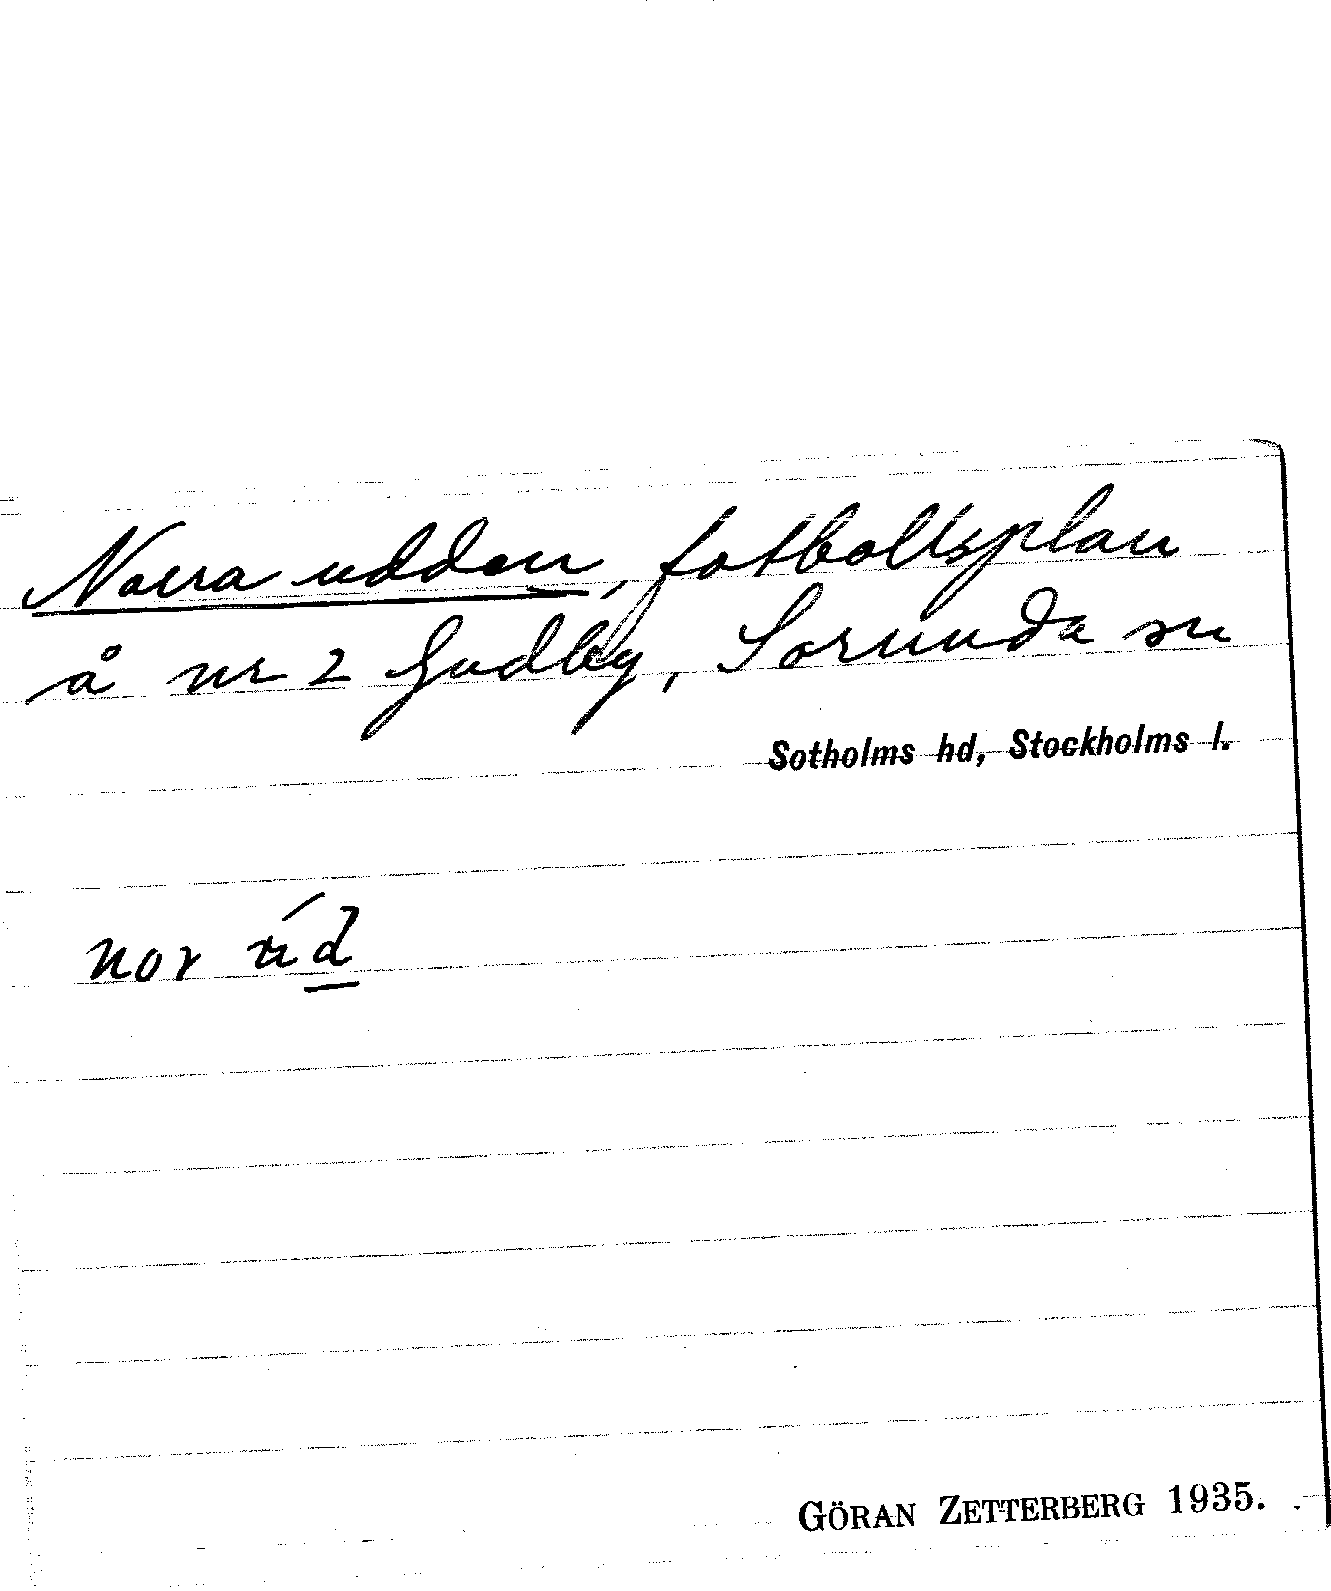 Norra udden, fotbollsplan
å nr 2 Gudby, Sorunda sn
Sotholms hd, Stockholms l.
nor úd
GÖRAN ZETTERBERG 1935.